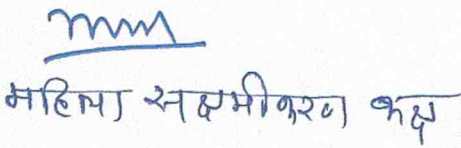 महिला सक्षमीकरण कक्ष